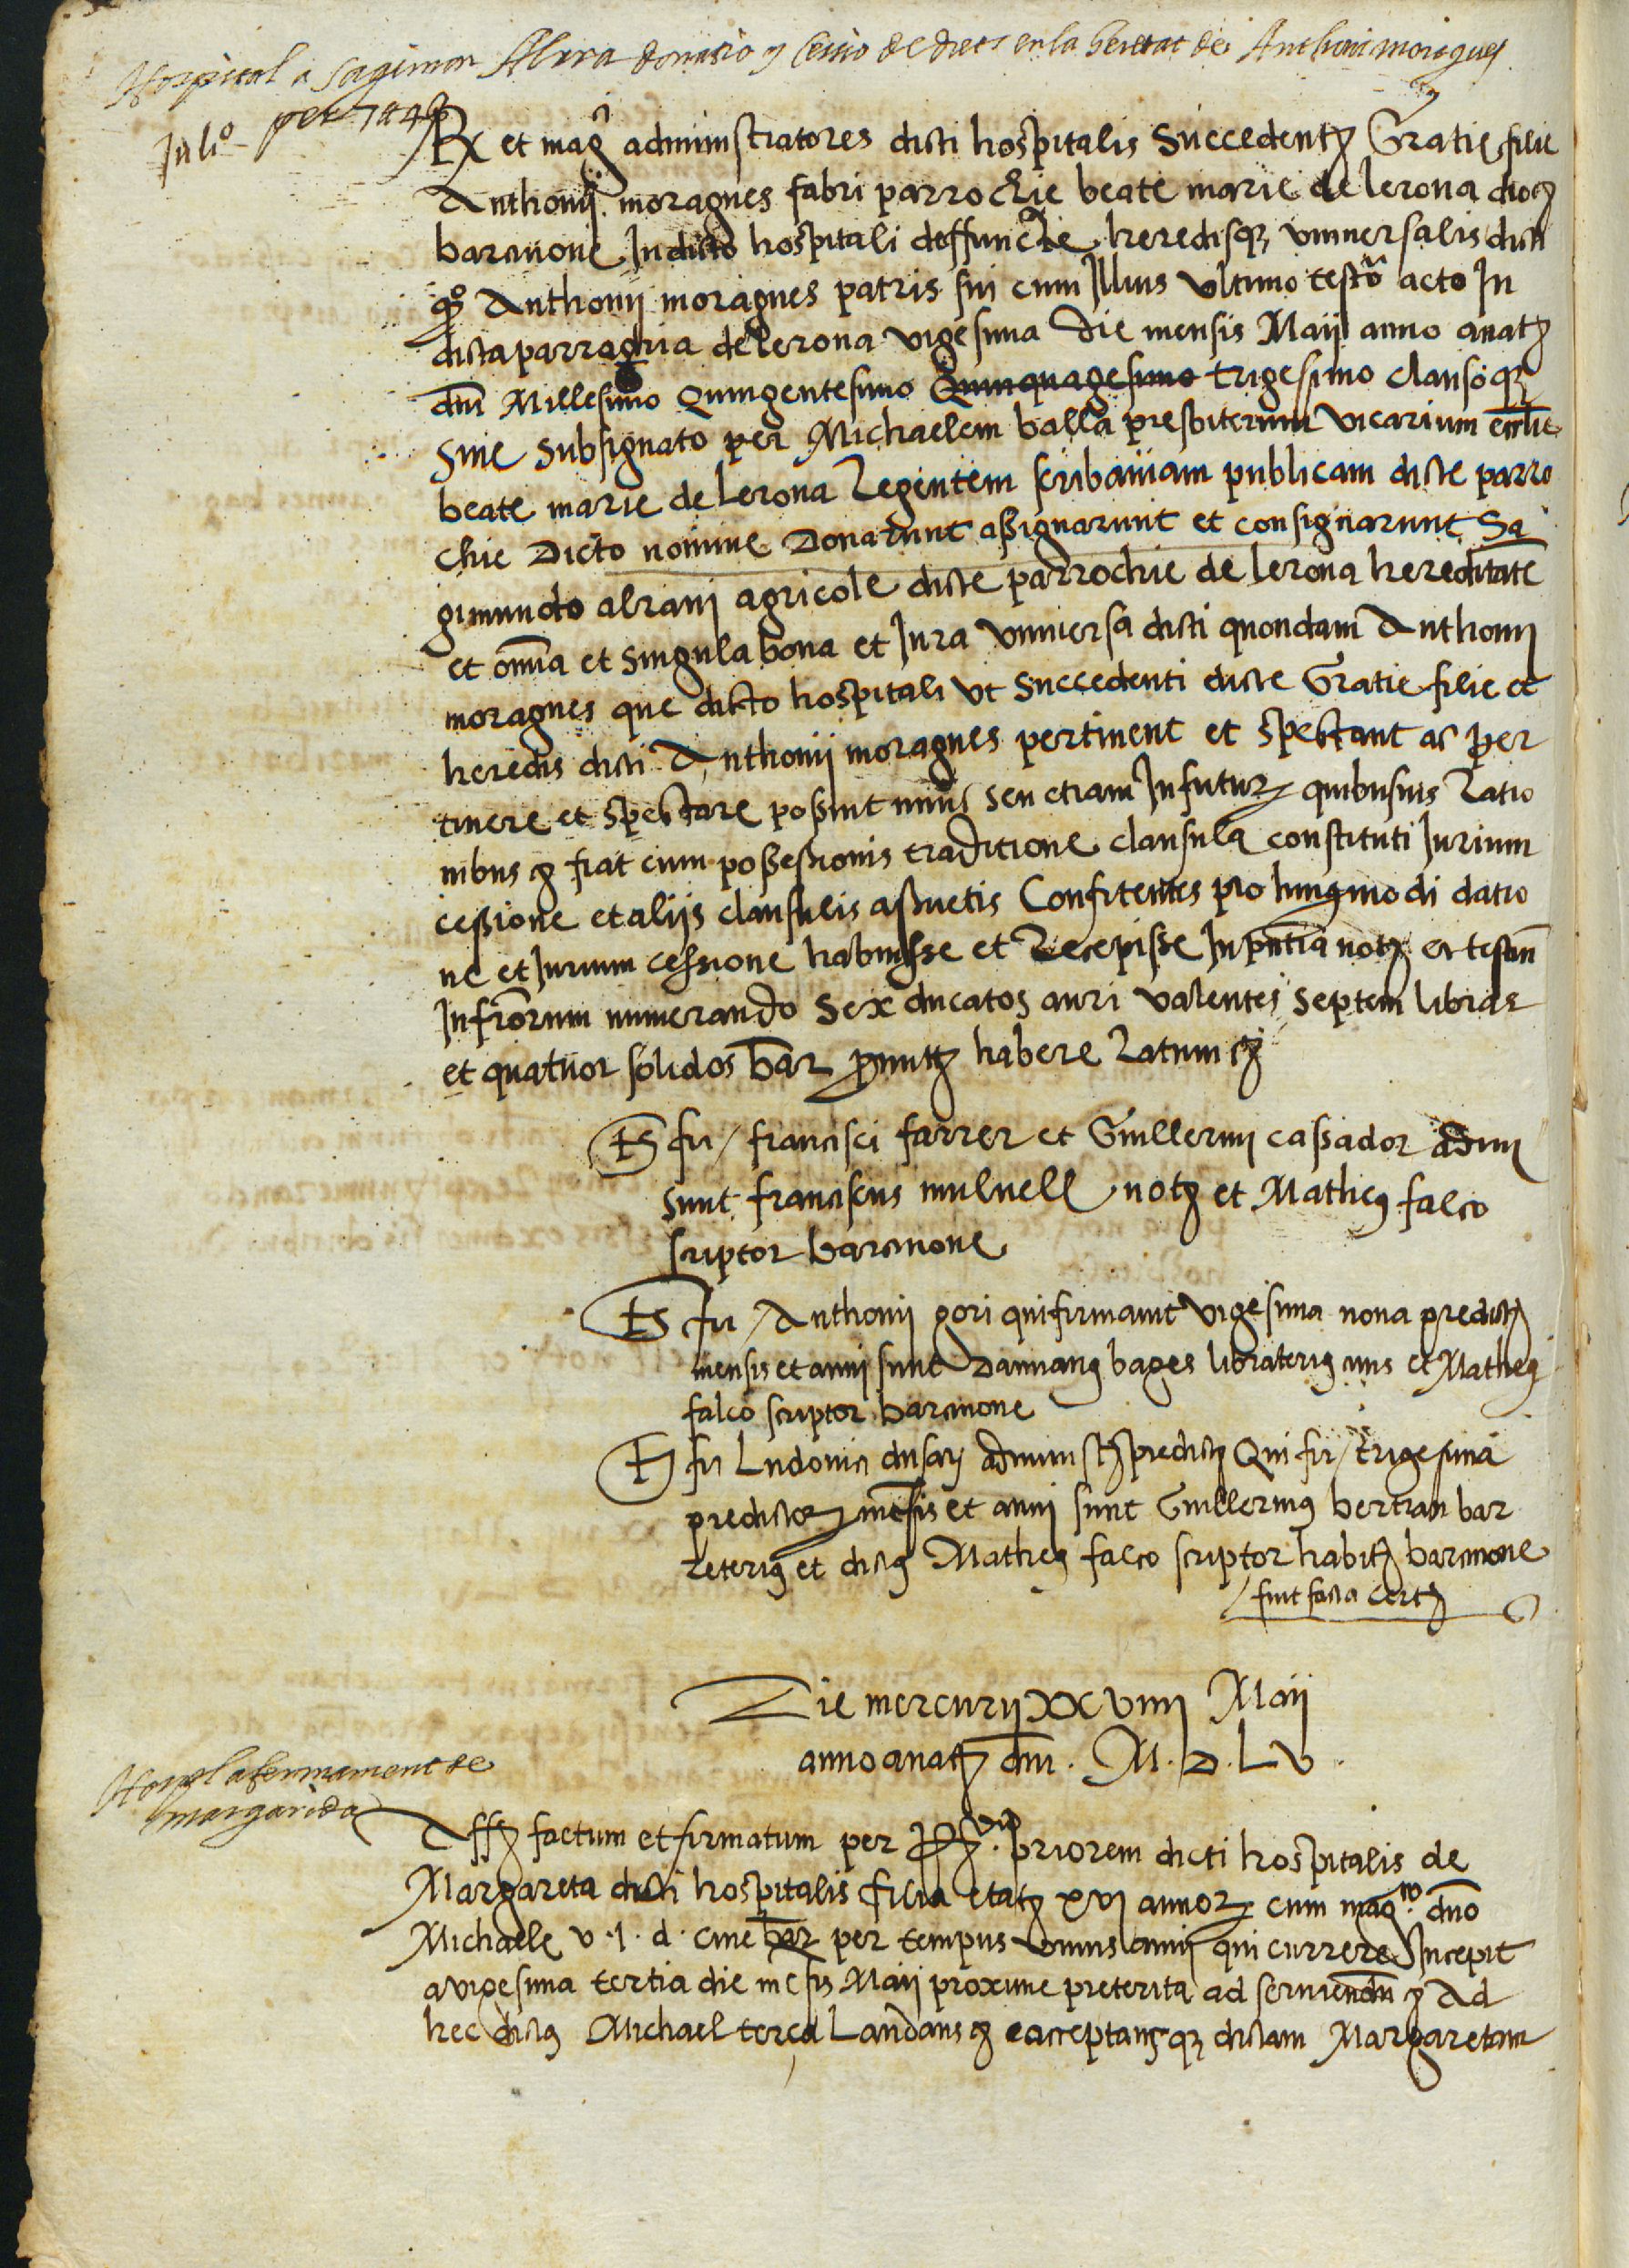 Hospital a Sagimon Alrra donasio y cessio de drets en la heretat de Anthoni moragues
per 7 ## 4 ß
Julio
Rx et magci administratores dicti hospitalis Succedentis Gratie filie
Anthonij moragues fabri parrochie beate marie de lerona dioc
barcinone In dicto hospitali deffuncte heredisque universalis dicti
qo Anthonij moragues patris sui cum Illius ultimo testo acto In
dicta parrochia de lerona vigesima die mensis Maij anno anat
dni Millesimo Quingentesimo Quinquagesimo trigessimo clausoque
sine subsignato per Michaelem balla presbiterum vicarium ecclie
beate marie de lerona Regentem scribaniam publicam dicte parro
chie Dicto nomine Donarunt assignarunt et consignarunt Sa
gimundo alrani agricole dicte parrochie de lerona hereditatem
et omnia et singula bona et Jura universa dicti quondam Anthonij
moragues que dicto hospitali ut succedenti dicte Gratie filie et
heredis dicti Anthonij moragues pertinent et spectant ac per
tinere et spectare possint nunc seu etiam In futur quibusuis Ratio
nibus et fiat cum possessionis traditione clausula constituti Jurium
cessione et alijs clausulis assuetis Confitentes pro huiusmodi datio
ne et Jurium cessione habuisse et Recepisse In pntia not et testium
Infrorum numerando sex ducatos auri valentes septem libras
et quatuor solidos bar promitt habere Ratum et
Ts fir / francisci farrer et Guillermi cassador admi
sunt franciscus mulnell not et Matheus falco
scriptor barcinone
Ts fir / Anthonij gori qui firmavit vigesima nona predict
mensis et anni sunt Damianus bages libraterius civis et Matheus
falco scriptor barcinone
Ts fir Ludovici dusay administ predict Qui fir / trigesima
predictor mensis et anni sunt Guillermus bertran bar
reterius et dictus Matheus falco scriptor habit barcinone
fuit facta cert
Die mercurij XXVIIII Maij
anno anat dni . M . D . L V .
Hospl afermament de
margarida
Afft factum et firmatum per priorem dicti hospitalis de
Margareta dicti hospitalis filia etat xvi annor cum magco dno
Michaele v . J . d . cive bar per tempus unius anni qui currere Incepit
a vigesima tertia die mesis Maij proxime preterita ad serviendum et Ad
hec dictus Michael terça Laudans et acceptansque dictam Margaretam